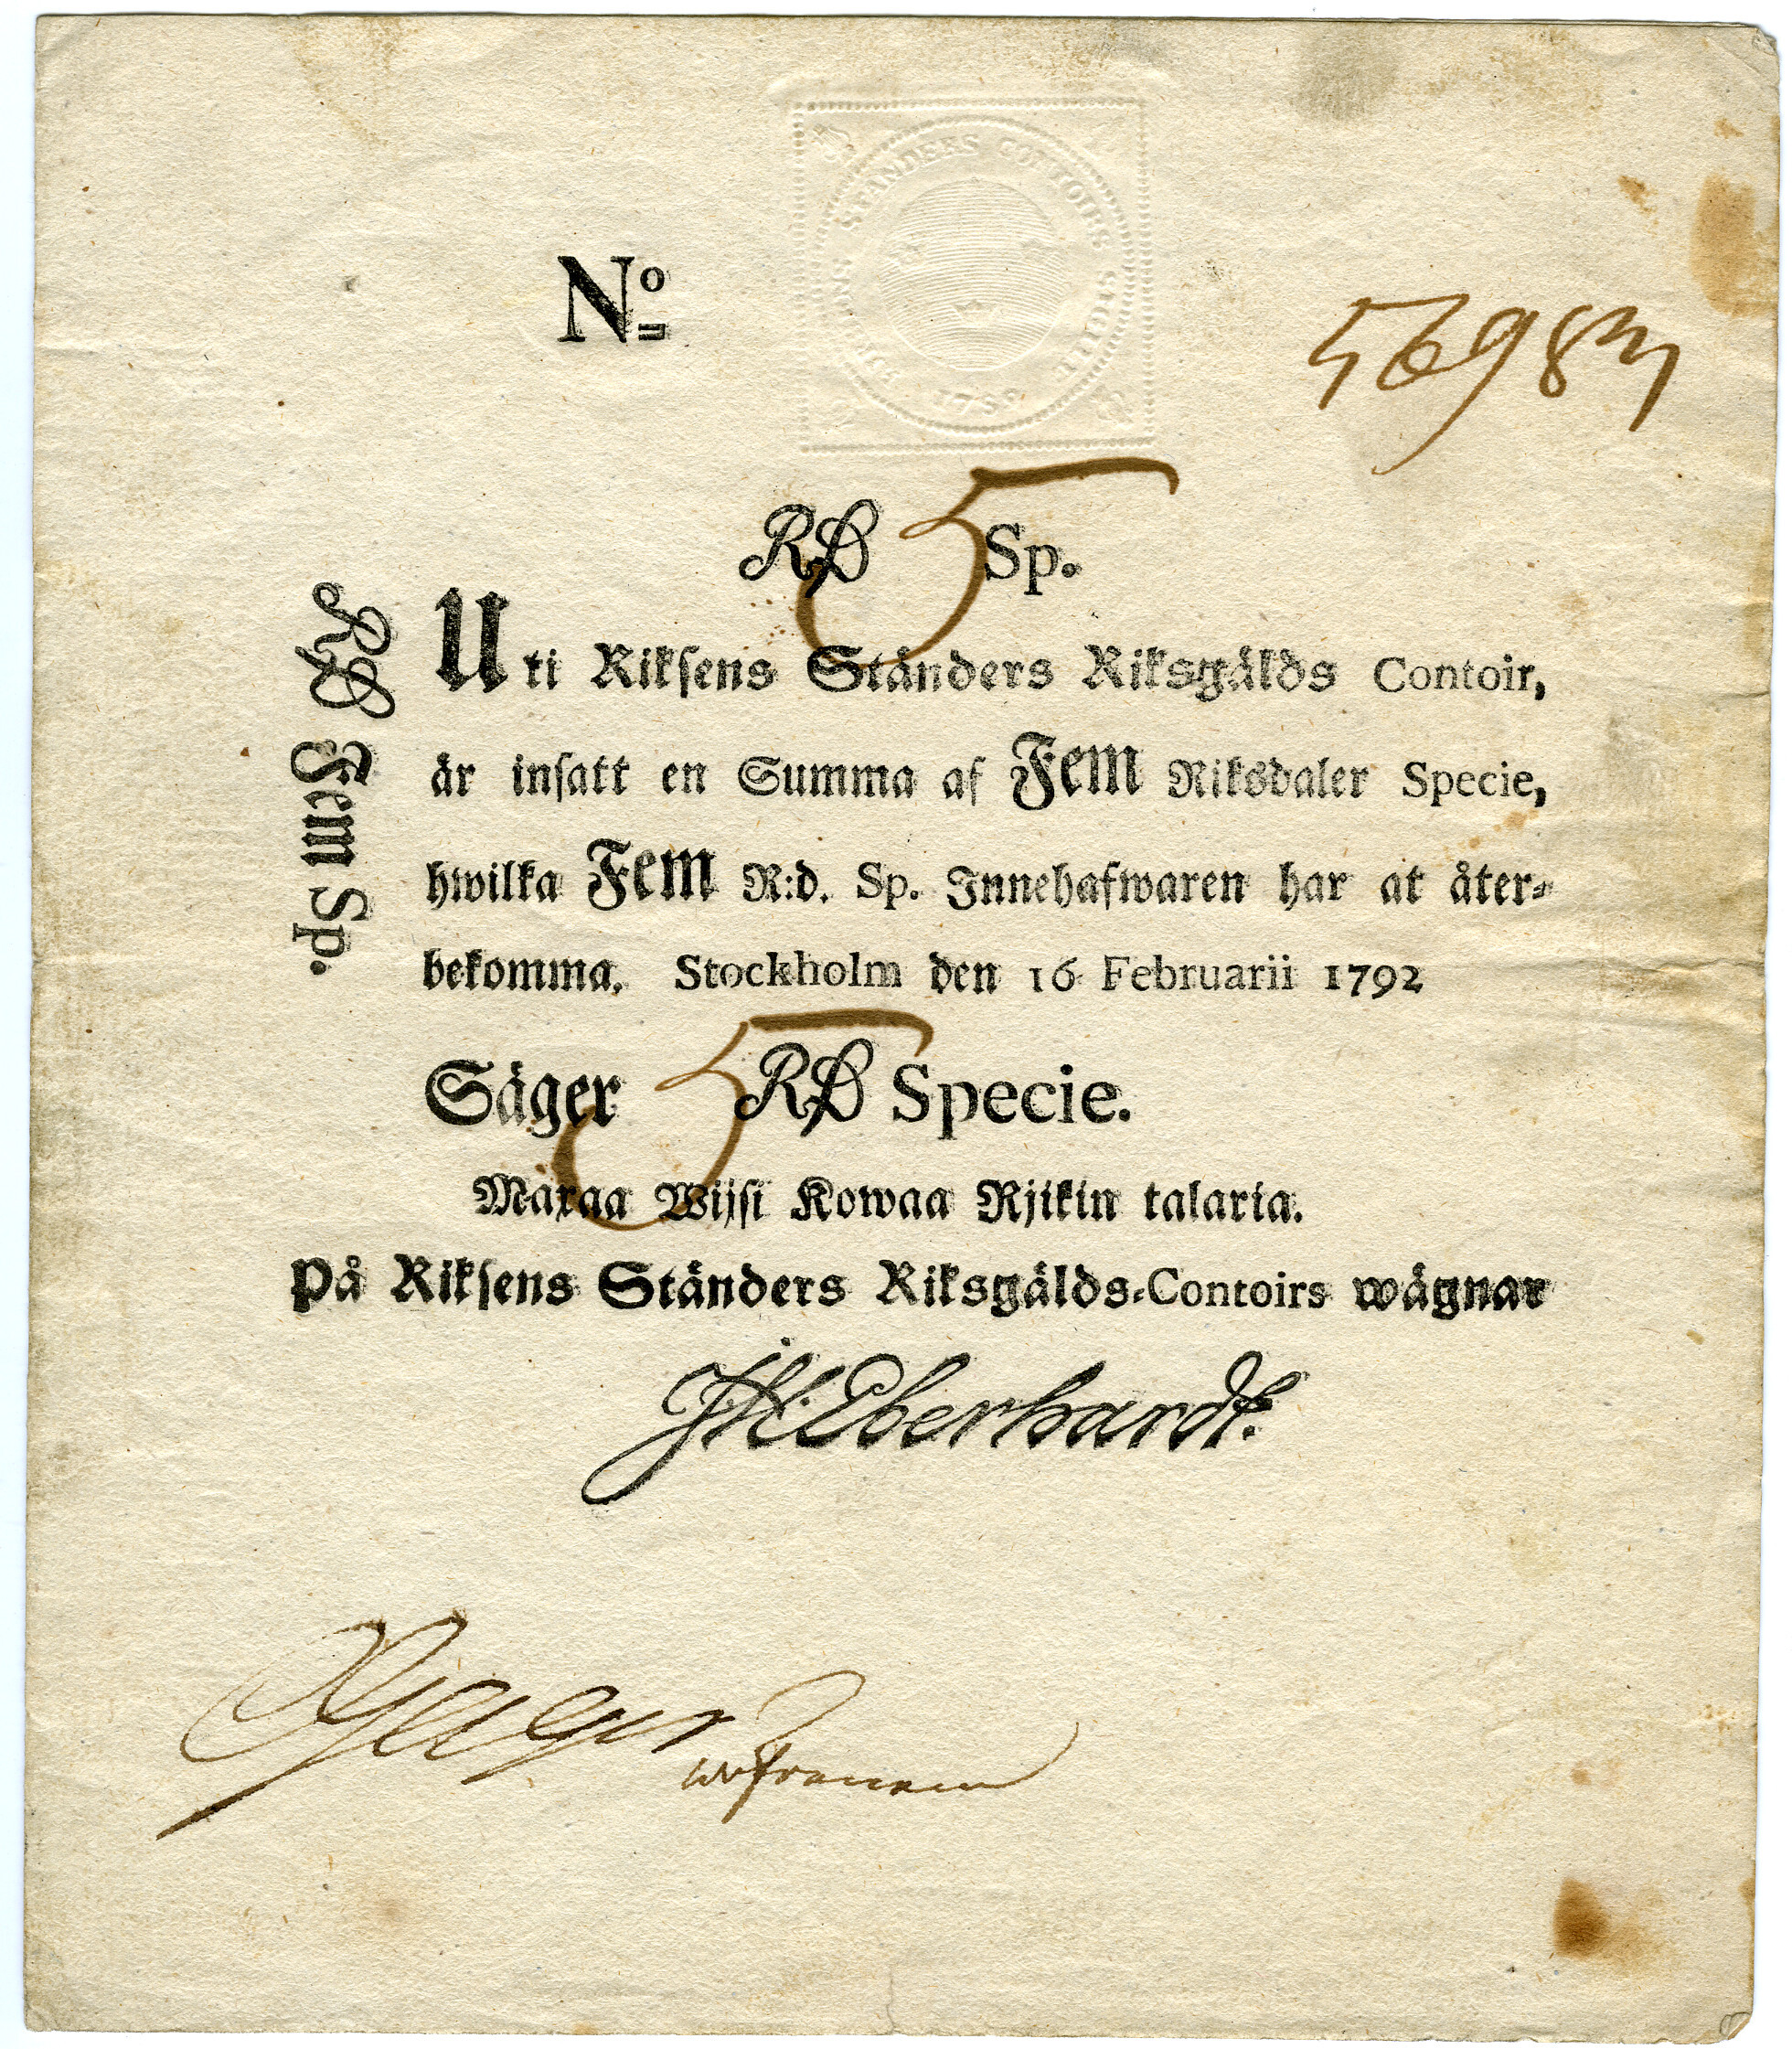 RIKSENS STÄNDERS CONTOIRS
1789
No
56983
RD 5 Sp.
RD Fem Sp.
Uti Riksens Ständers Riksgälds Contoir,
är insatt en Summa af Fem Riksdaler Specie,
hwilka Fem R:d. Sp. Innehafwaren har at åter-
bekomma. Stockholm den 16 Februarii 1792
Säger 5 RD Specie.
Maxaa Wijsi Kowaa Rjikin talaria.
På Riksens Ständers Riksgälds-Contoirs wägnar
JH Eberhardt.